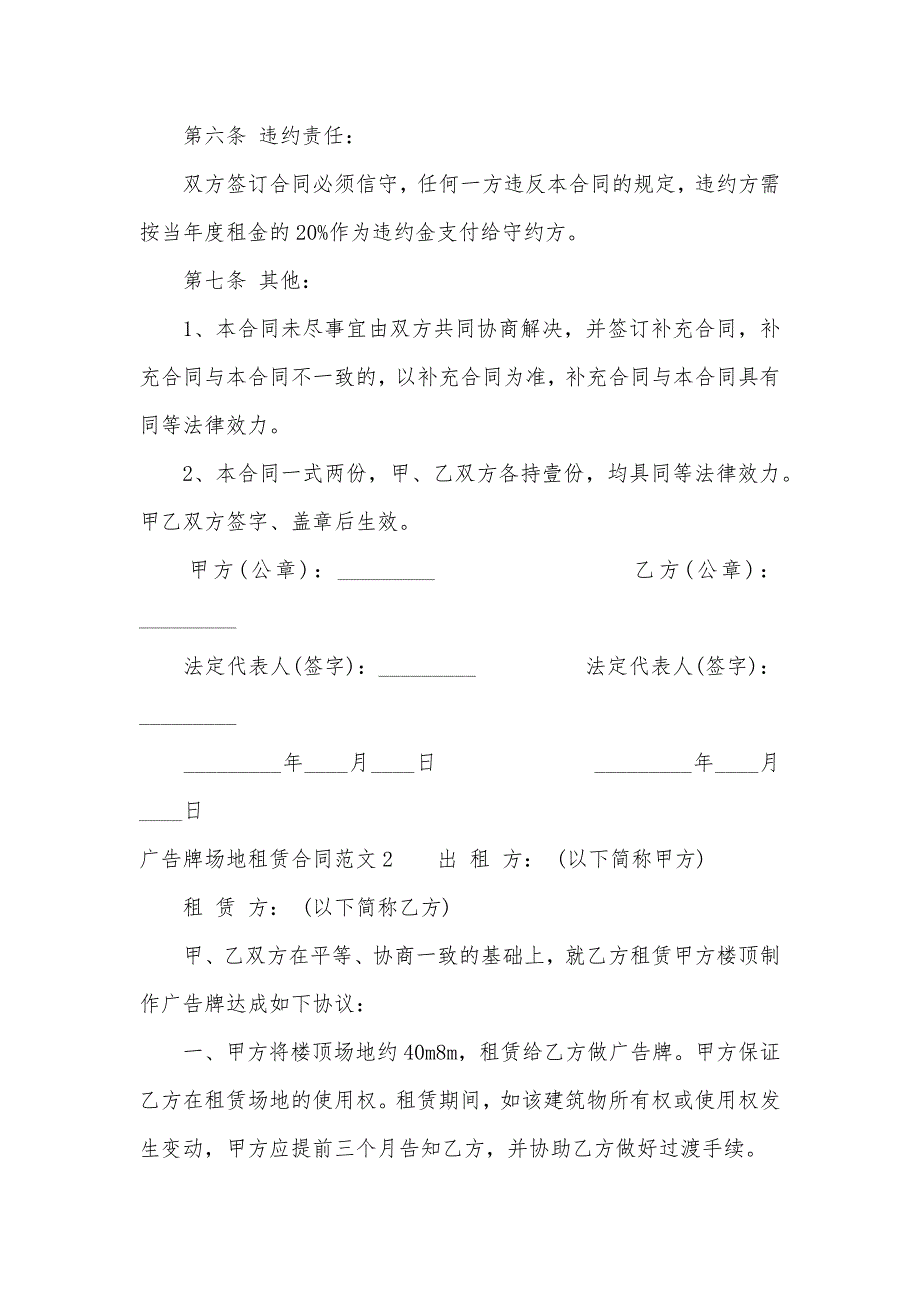 第六条 违约责任：
双方签订合同必须信守，任何一方违反本合同的规定，违约方需
按当年度租金的 20%作为违约金支付给守约方。
第七条 其他：
1、本合同未尽事宜由双方共同协商解决，并签订补充合同，补
充合同与本合同不一致的，以补充合同为准，补充合同与本合同具有
同等法律效力。
2、本合同一式两份，甲、乙双方各持壹份，均具同等法律效力。
甲乙双方签字、盖章后生效。
甲方(公章)：_________ 乙方(公章)：
_________
法定代表人(签字)：_________ 法定代表人(签字)：
_________
_________年____月____日 _________年____月
____日
广告牌场地租赁合同范文 2 出 租 方： (以下简称甲方)
租 赁 方： (以下简称乙方)
甲、乙双方在平等、协商一致的基础上，就乙方租赁甲方楼顶制
作广告牌达成如下协议：
一、甲方将楼顶场地约 40m8m，租赁给乙方做广告牌。甲方保证
乙方在租赁场地的使用权。租赁期间，如该建筑物所有权或使用权发
生变动，甲方应提前三个月告知乙方，并协助乙方做好过渡手续。